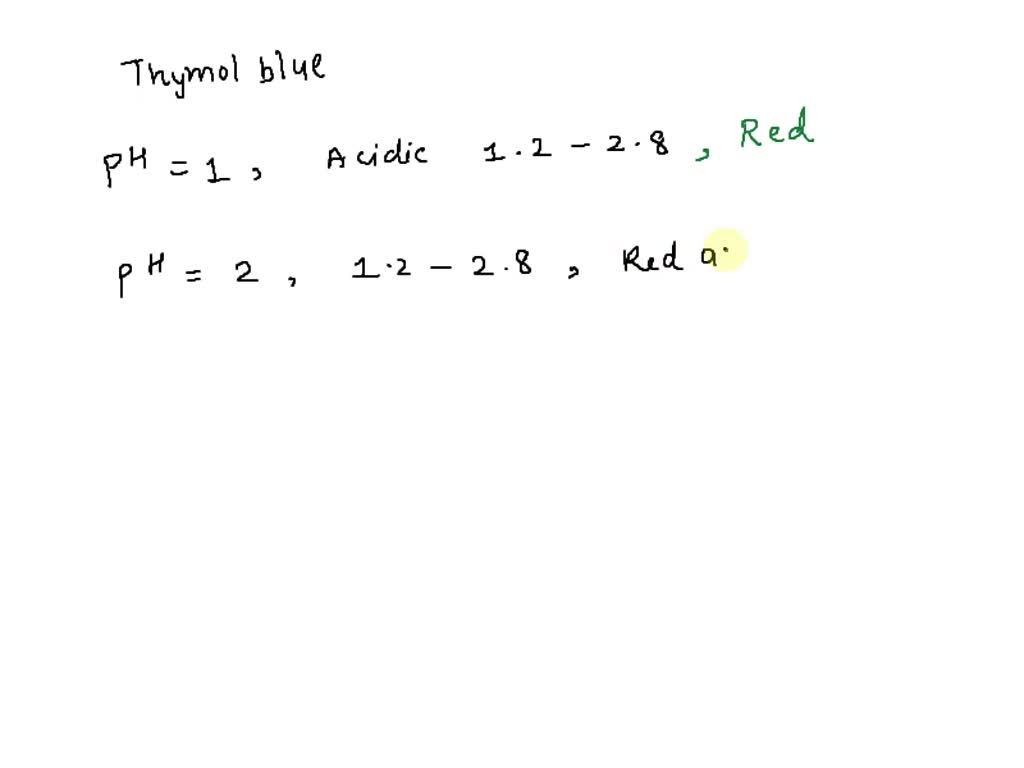 Thymol blue
pH = 1, Acidic 1.2 - 2.8, Red
pH = 2, 1.2 - 2.8, Red